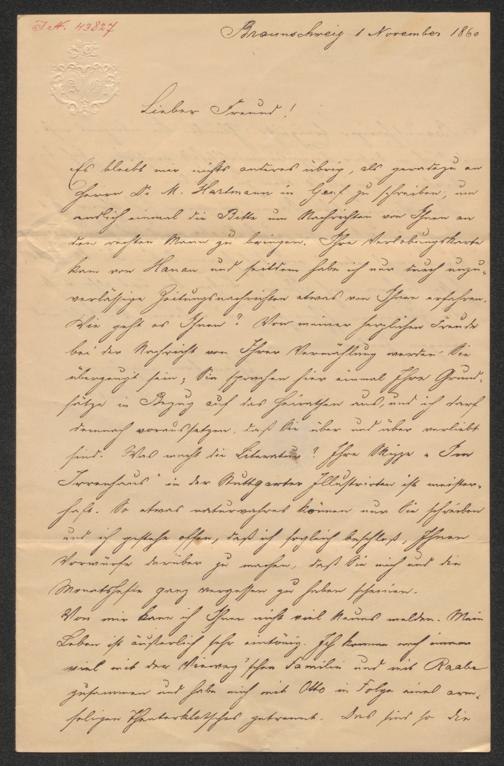 I. N. 43827
Braunschweig 1 November 1860
Lieber Freund!
Es bleibt mir nichts anderes übrig, als geradezu an
Herrn Dr M. Hartmann in Genf zu schreiben, um
endlich einmal die Bitte um Nachrichten von Ihnen an
den rechten Mann zu bringen. Ihre Verlobungskarte
kam von Hanau und seitdem habe ich nur durch unzu-
verlässige Zeitungsnachrichten etwas von Ihnen erfahren.
Wie geht es Ihnen? Von meiner herzlichen Freude
bei der Nachricht von Ihrer Vermählung werden Sie
überzeugt sein; Sie sprachen hier einmal Ihre Grund-
sätze in Bezug auf das Heirathen aus, und ich darf
demnach voraussetzen, daß Sie über und über verliebt
sind. Was macht die Literatur? Ihre Skizze "Im
Irrenhaus" in der Stuttgarter Illustrirten ist meister-
haft. So etwas naturwahres können nur Sie schreiben
und ich gestehe offen, daß ich sogleich beschloß, Ihnen
Vorwürfe darüber zu machen, daß Sie mich und die
Monatshefte ganz vergessen zu haben scheinen.
Von mir kann ich Ihnen nicht viel Neues melden. Mein
Leben ist äußerlich sehr eintönig. Ich komme noch immer
viel mit der Vieweg'schen Familie und mit Raabe
zusammen und habe mich mit Otto in Folge eines arm-
seligen Theaterklatsches getrennt. Das sind so die